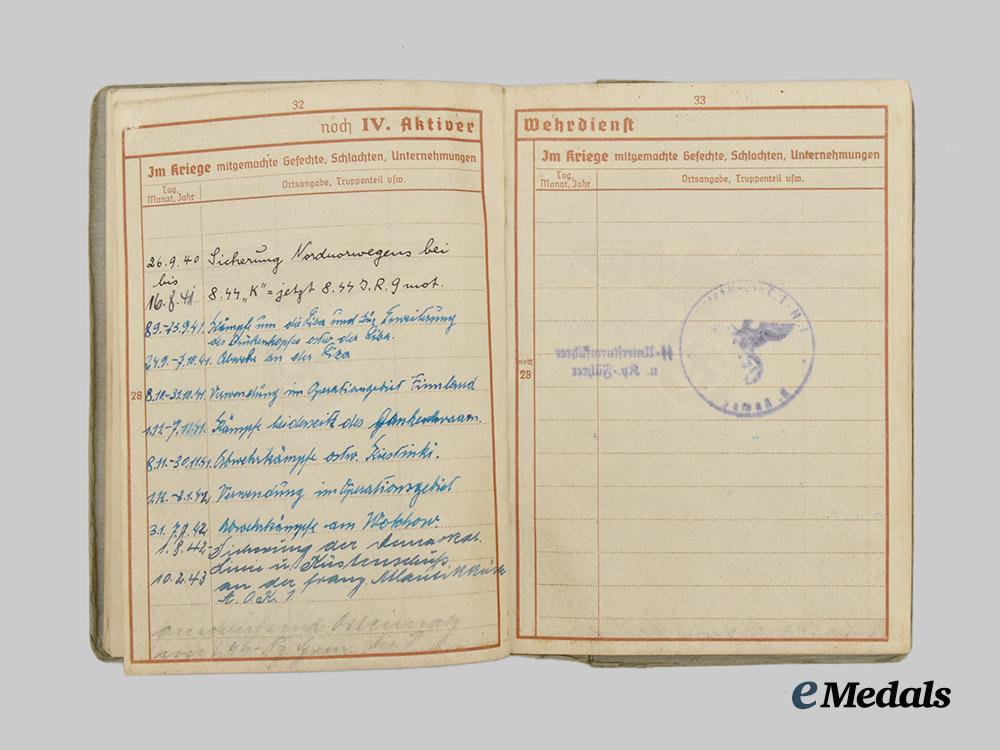 32
noch IV. Aktiver
Im Kriege mitgemachte Gefechte, Schlachten, Unternehmungen
Tag, Monat, Jahr
Ortsangabe, Truppenteil usw.
26.9.40 Sicherung Nordnorwegens bei
bis
16.8.41 8.44 „K" = jetzt 8.44 J.R. 9 mot.
8.9.-23.9.41. Kämpfe um die Liza und zur Erweiterung
des Brückenkopfes ostw. der Liza.
24.9.-7.10.41. Abwehr an der Liza
28
8.10.-31.10.41. Verwendung im Operationsgebiet Finnland
1.11.-7.11.41. Kämpfe beiderseits des
8.11.-30.11.41. Abwehrkämpfe ostw. Kiestinki.
Verwendung im Operationsgebiet
Abwehrkämpfe am Wolchow.
1.8.42- Sicherung der Demarkat.
Linie u. Küstenschutz
10.2.43 an der franz. Atlantikküste
A.O.K. 1.
33
Wehrdienst
Im Kriege mitgemachte Gefechte, Schlachten, Unternehmungen
Tag, Monat, Jahr
Ortsangabe, Truppenteil usw.
28
SS-Untersturmführer
u. Kp.-Führer
eMedals